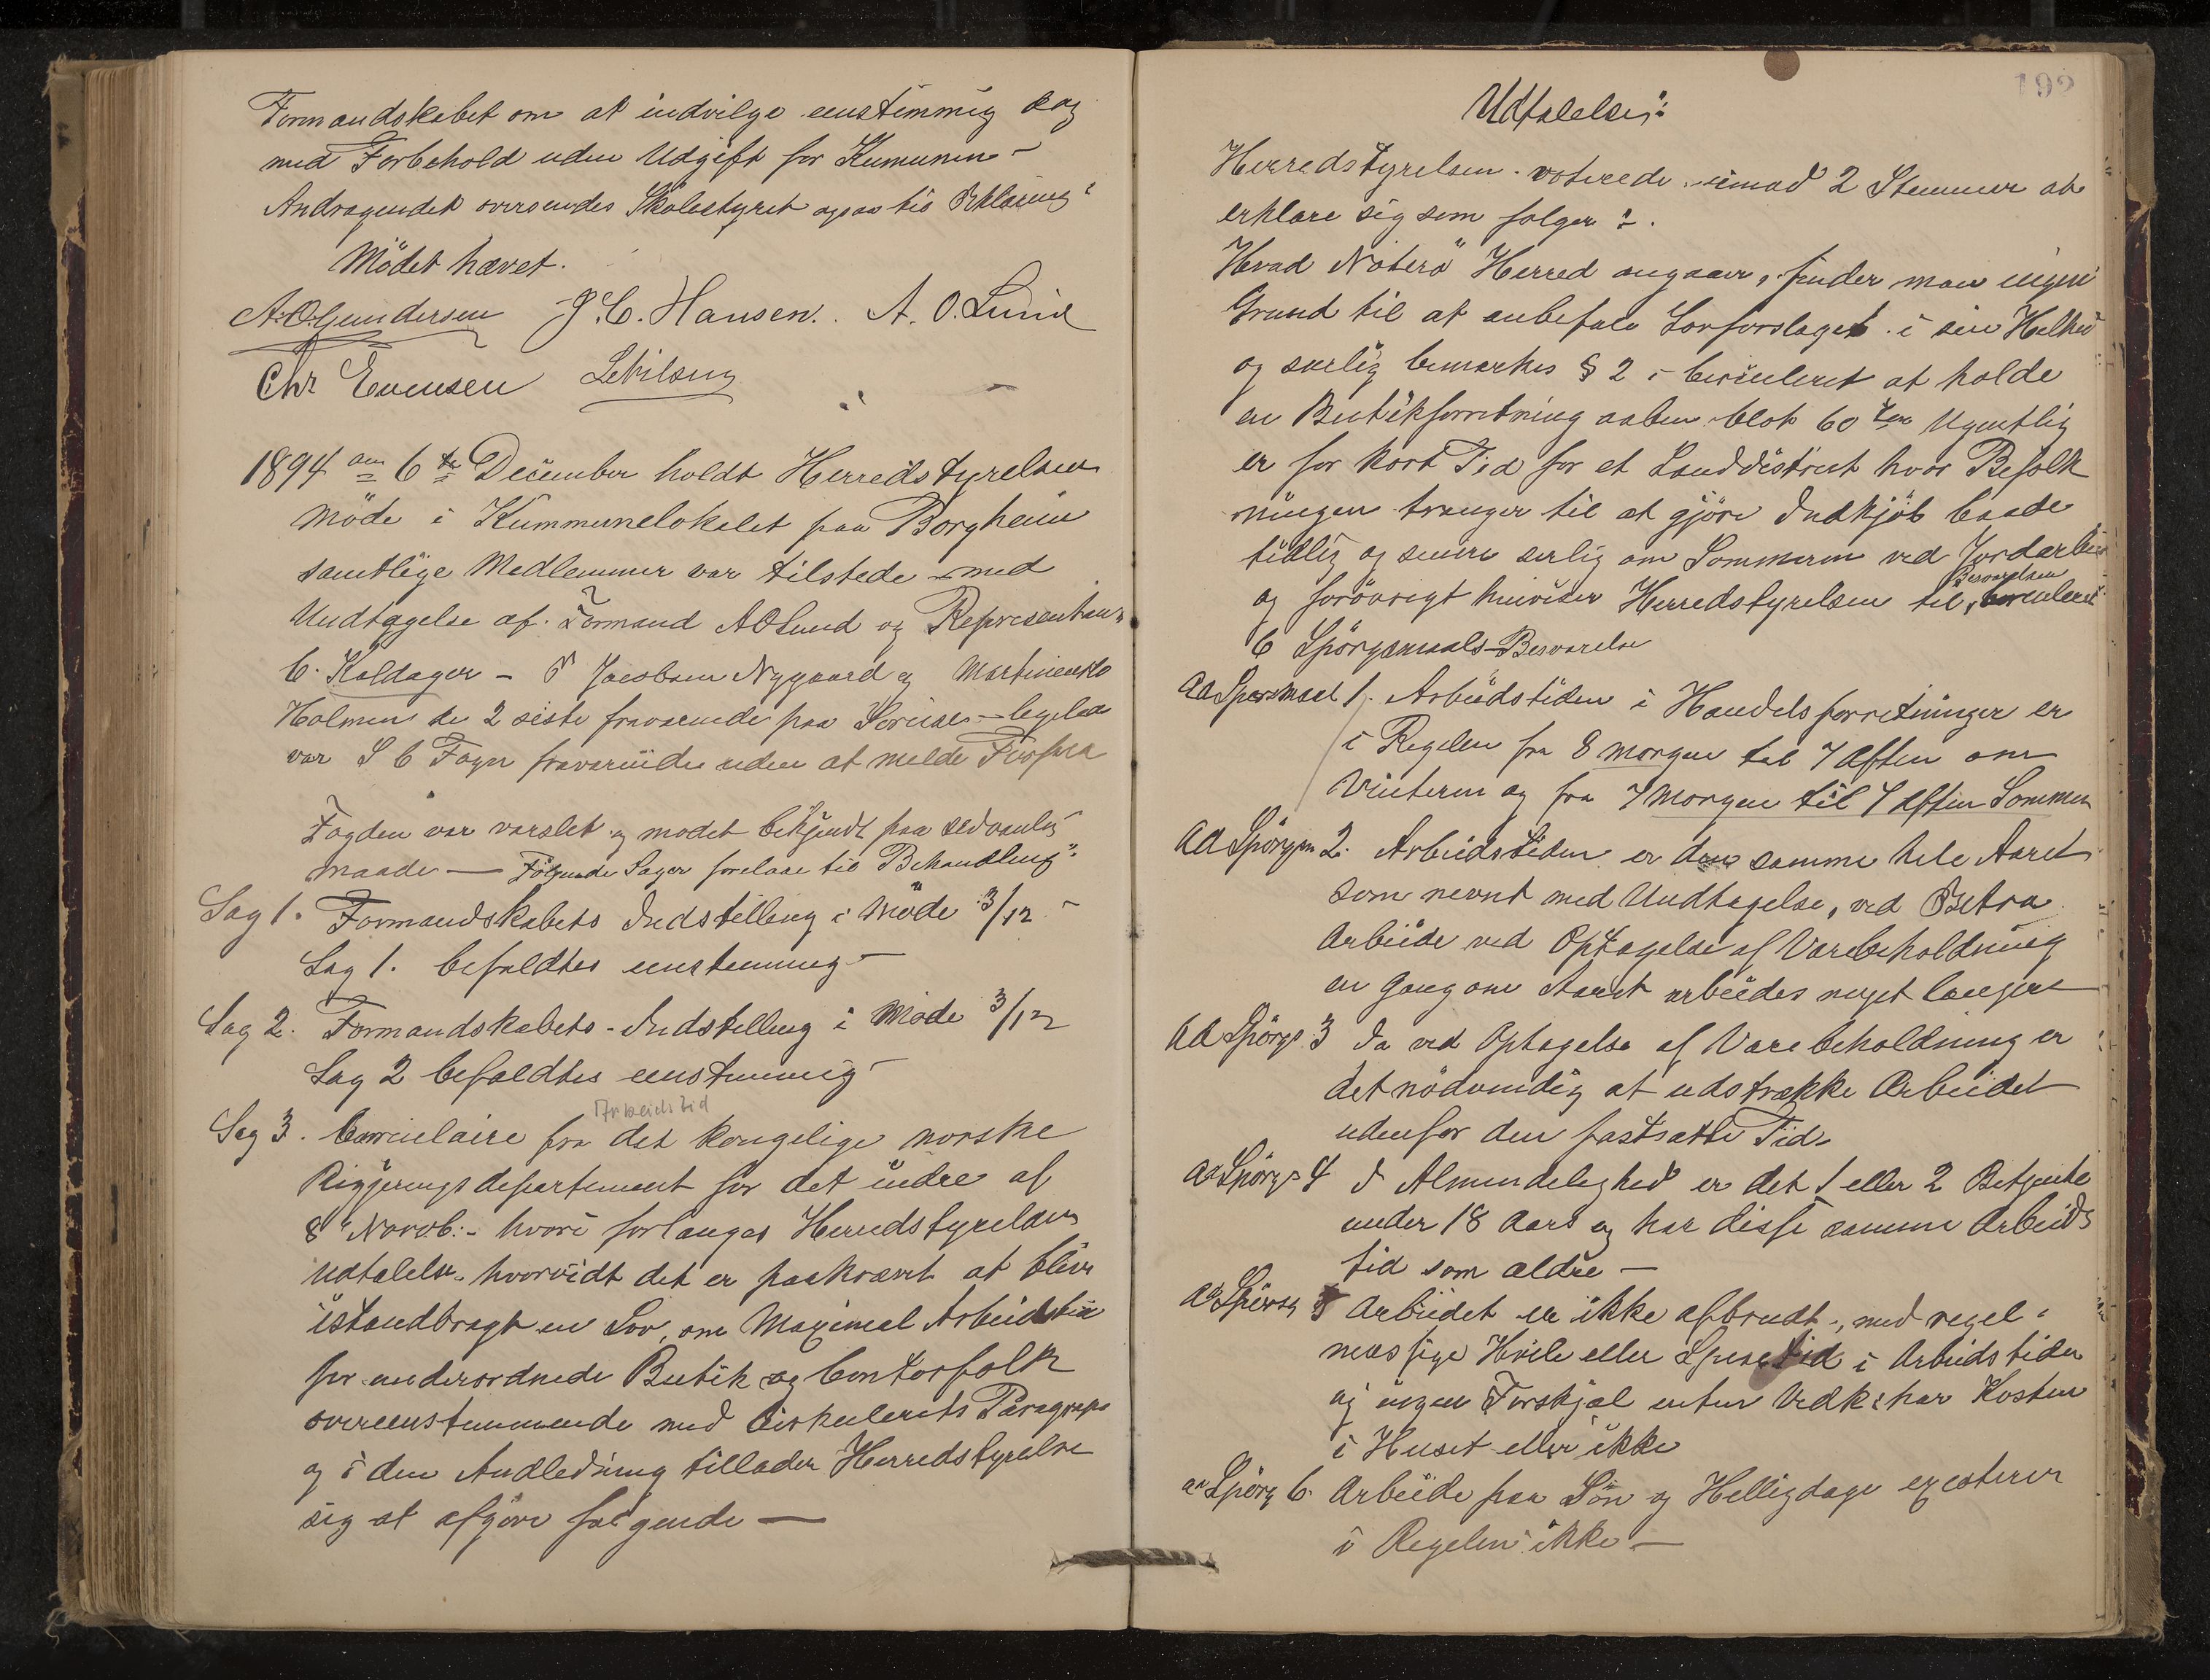 Formandskabet om at indvilge enstimmig dog
med Forbehold uden Udgift for Kumunen -
Andragendet oversendes Skolestyret ogsaa til Erklæring
Mödet hævet.
A. O. Gundersen J. C. Hansen. A. O. Lund
Chr Evensen
1894 am 6te December holdt Herredstyrelsen
möde i Kummunelokalet paa Borgheim
samtlige Medlemmer var tilstede med
Undtagelse af Formand A O Lund og Representan
C. Kaldager - Jacobsen Nygaard og
Holmen de 2 siste fraværende paa
var S C Fogn fraværende uden at melde Forfald
Fogden var varslet og mödet bekjendt paa sedvanlig
maade — Følgende Sager forelaae til Behandling:
Sag 1. Formandskabets Indstilling i Möde 3/12 -
Sag 1. befaldtes enstemmig -
Sag 2. Formandskabets - Indstilling i Møde 3/12
Sag 2 befaldtes enstemmig
Arbeidstid
Sag 3. Circulaire fra det kongelige norske
Riggjeringsdepartement for det indre af
8 Novb:- hvori forlanges Herredstyrelsens
Udtalelse hvorvidt det er paakrævet at blive
istandbragt en Lov om Maximal Arbeidstid
for underordnede Butik og Contorfolk
overensstemmende med Cirkulerets Paragraps
og i den Andledning tillader Herredstyrelse
sig at afgjøre følgende —
192
Udtalelse:
Herredstyrelsen voterede imod 2 Stemmer at
erklare sig som følger :.
Hvad Nöterö Herred angaaer, finder man ingen
Grund til at anbefale Lovforslaget i sin Helhed
og særlig bemærkes § 2 i Circuleret at holde
en Butikforretning aaben blot 60 Ugentlig
er for kort Tid for et Landdistrict hvor Befolk
ningen trænger til at gjöre Indkjöb baade
tidlig og senere serlig om Sommeren ved Jordarbeid
Besvarelsen
og forövrigt henviser Herredstyrelsen til, Circuleret
6 Spörgsmaals-Besvarelse
ad Spørsmaal 1. Arbeidstiden i Handelsforretninger er
i Regelen fra 8 morgen til 7 Aften om
Vinteren og fra 7 morgen til 7 Aften Sommer
ad Spörgm 2. Arbeidstiden er den samme hele Aaret
som nevnt med Undtagelse, ved Extra
Arbeide ved Optagelse af Varebeholdning
en Gang om Aaret arbeides noget længere
ad Spörgs 3 Ja ved Optagelse af Varebeholdning er
det nödvendig at udstrække Arbeidet
udenfor den fastsatte Tid.
ad Spörgs 4 I Almindelighed er det 1 eller 2 Betjente
under 18 Aars og har disse samme Arbeids
tid som ældre —
ad Spörsg 5 Arbeidet er ikke afbrudt, med regel-
mæssige Hvile eller Spisetid i Arbeidstiden
og ingen Forskjel enten Vedk: har Kosten
i Huset eller ikke
ad Spörg 6. Arbeide paa Sön og Helligdage existerer
i Regelen ikke —